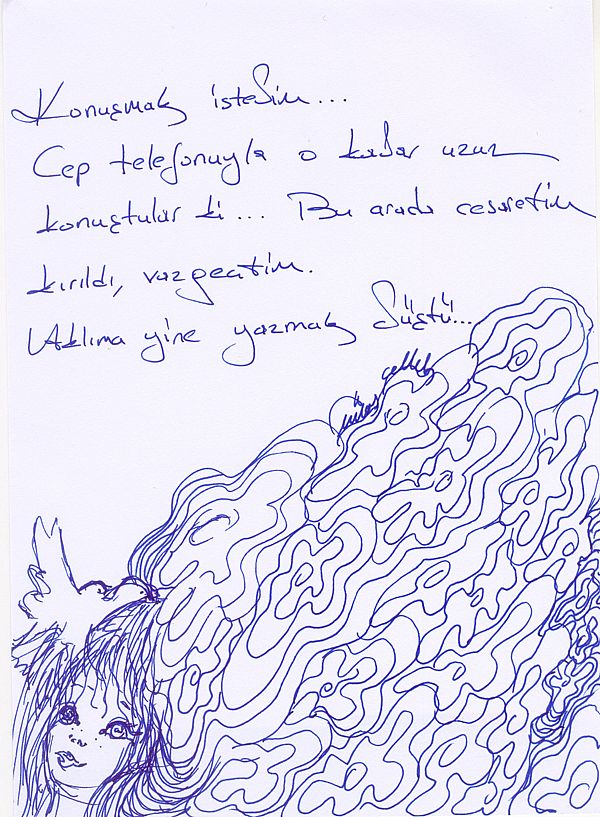 Konuşmak istedim...
Cep telefonuyla o kadar uzun
konuştular ki... Bu arada cesaretim
kırıldı, vazgeçtim.
Aklıma yine yazmak düştü...